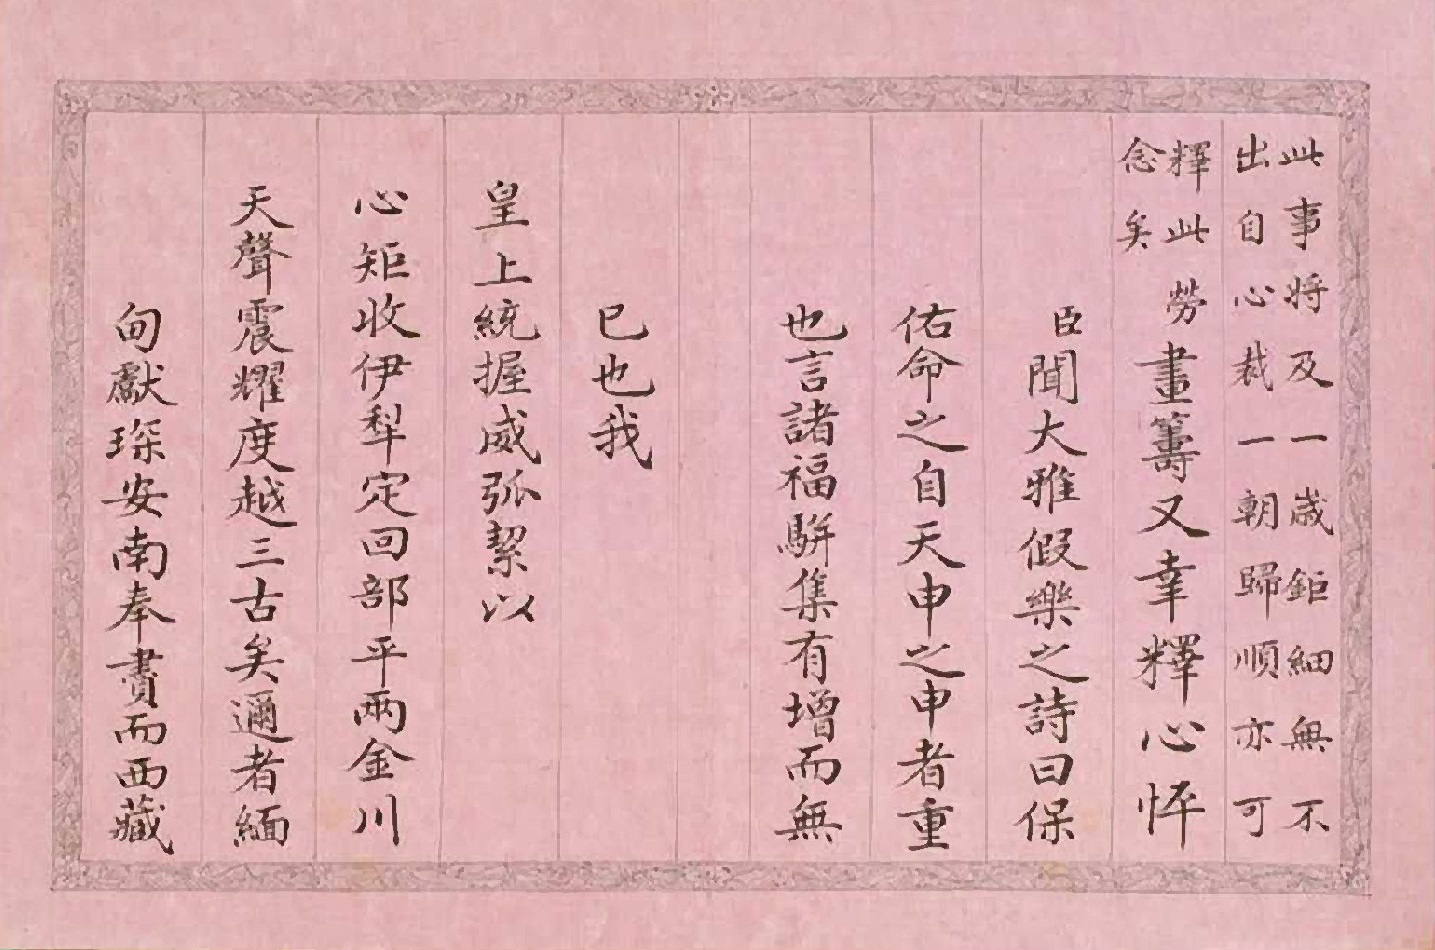 此事將及一歲鉅細無不
出自心裁一朝歸順亦可
釋此勞
念矣
畫籌又幸釋心怦
臣聞大雅假樂之詩曰保
佑命之自天申之申者重
也言諸福駢集有增而無
已也我
皇上統握威弧絜以
心矩收伊犁定回部平兩金川
天聲震耀度越三古矣邇者緬
甸獻琛安南奉賮而西藏